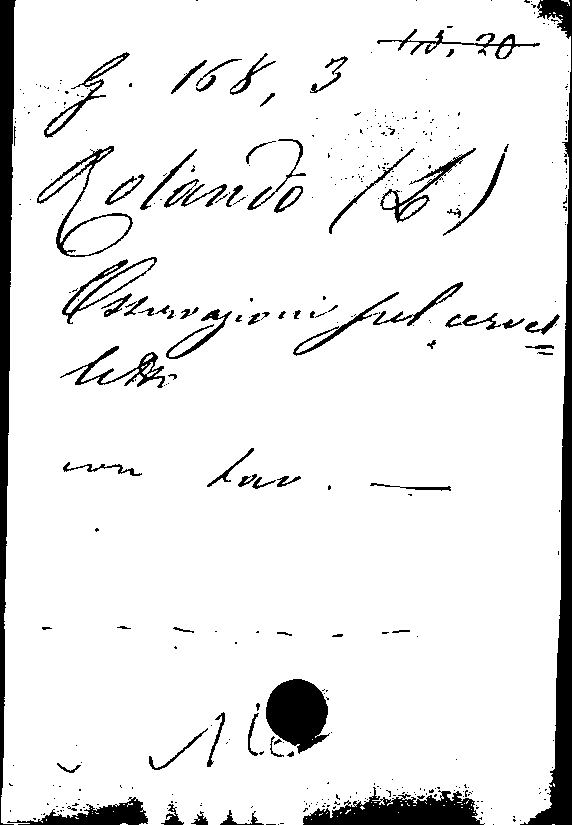 115, 20
G. 168, 3
Rolando (L.)
Osservazioni sul cervel=
letto
con tav. —